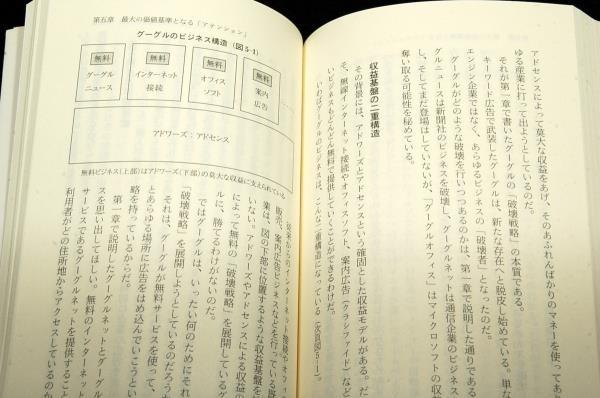 アドセンスによって莫大な収益をあげ、そのあふれんばかりのマネーを使ってあ
ゆる産業に打って出ようとしているのだ。
それが第一章で書いたグーグルの「破壊戦略」の本質である。
キーワード広告で武装したグーグルは、新たな存在へと脱皮し始めている。単な
エンジン企業ではなく、あらゆるビジネスの「破壊者」となったのだ。
グーグルがどのような破壊を行いつつあるのかは、第一章で説明した通りである
グルニュースは新聞社のビジネスを破壊し、グーグルネットは通信企業のビジネス
し、そしてまだ登場はしていないが、「グーグルオフィス」はマイクロソフトの収
奪い取る可能性を秘めている。
収益基盤の二重構造
その背景には、アドワーズとアドセンスという確固とした収益モデルがある。だ
そ、無線インターネット接続やオフィスソフト、案内広告（クラシファイド）など
いビジネスもどんどん無料で提供していくことができるわけだ。
いわばグーグルのビジネスは、こんな二重構造になっている（次頁図5-1）。
第五章 最大の価値基準となる「アテンション」
グーグルのビジネス構造（図5-1）
無料
グーグル
ニュース
無料
インターネット
接続
無料
オフィス
ソフト
無料
案内
広告
アドワーズ：アドセンス
無料ビジネス（上部）はアドワーズ（下部）の莫大な収益に支えられている
従来からのインターネット接続やオフィ
販売、案内広告ビジネスなどを行っている既
業は、図の下部に位置するような収益基盤を
いない。アドワーズやアドセンスによる収益の
によって無料の「破壊戦略」を展開しているグ
ルに、勝てるわけがないのだ。
ではグーグルは、いったい何のためにそれ
「破壊戦略」を展開しようとしているのだろう
それは、グーグルが無料サービスを使って、
とあらゆる場所に広告をはめ込んでいこうとい
略を持っているからだ。
第一章で説明したグーグルネットとグーグル
スを思い出してほしい。無料のインターネット
サービスであるグーグルネットを提供すること
利用者がどの住所地からアクセスしているの